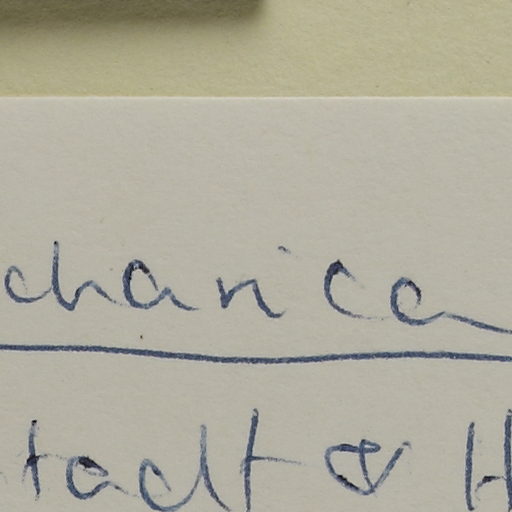 chanica
tadt & H